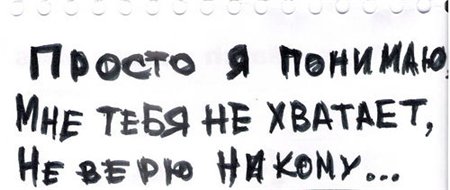 Просто я понимаю
Мне тебя не хватает,
Не верю никому...